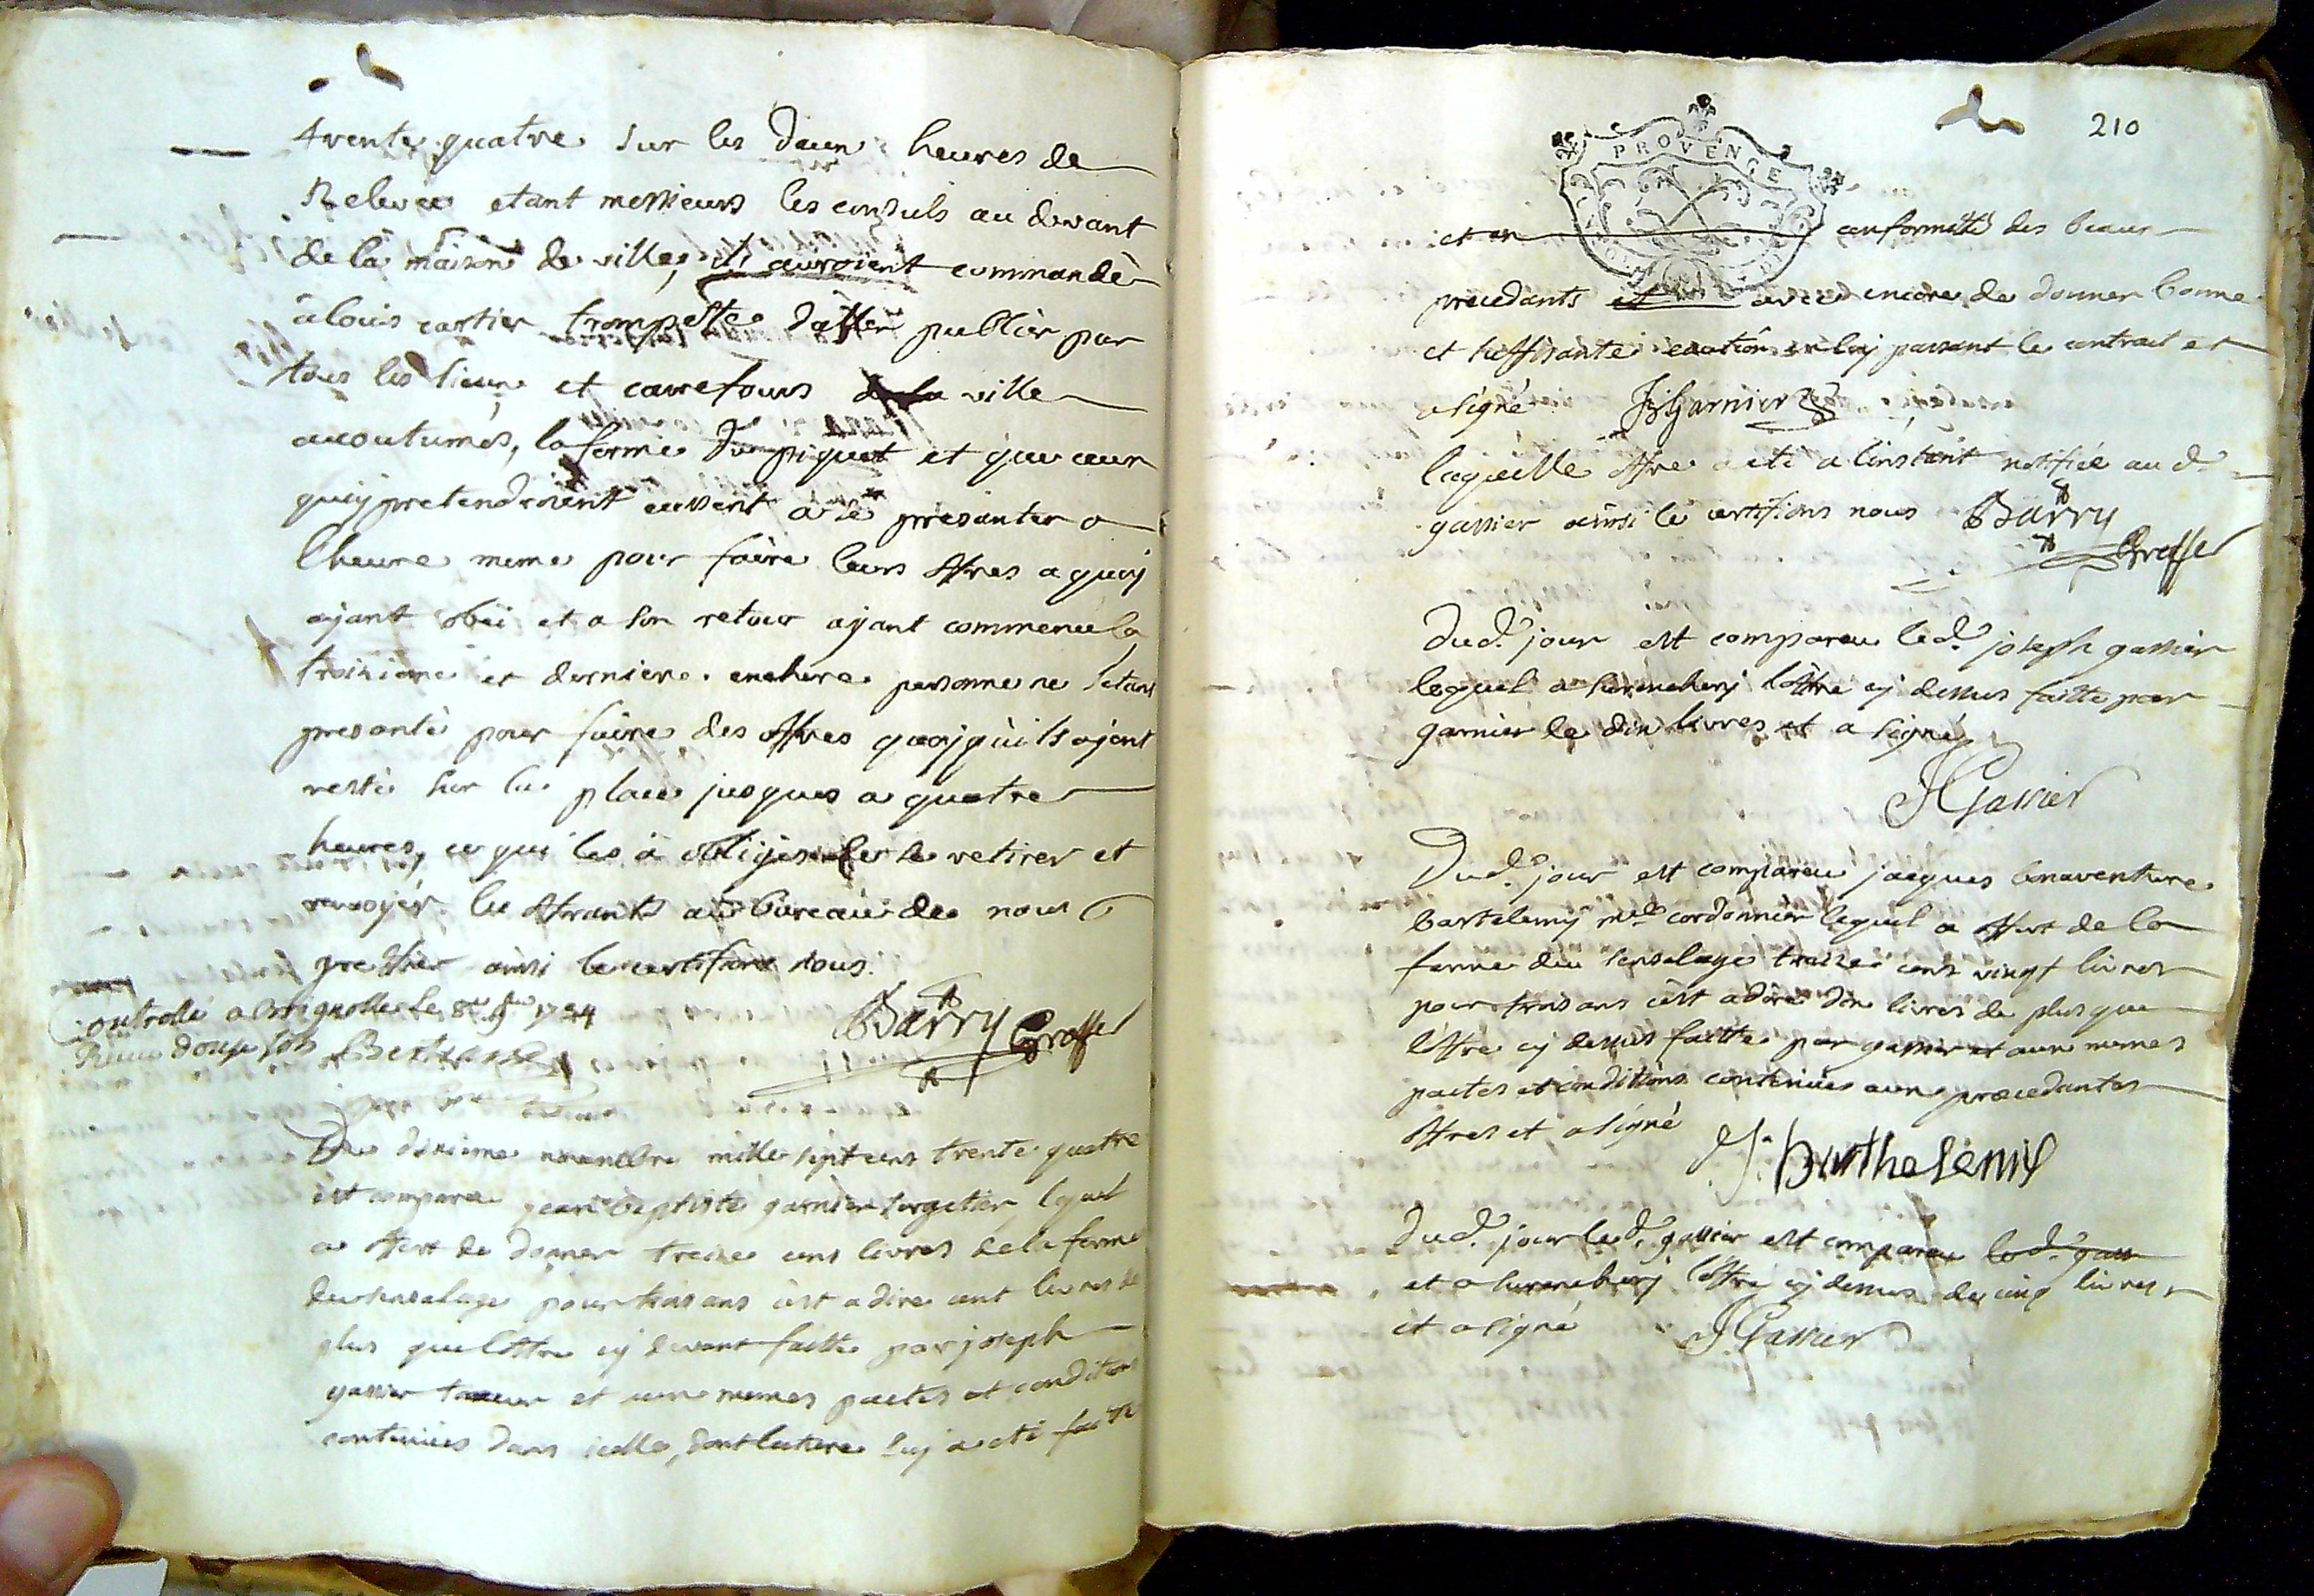 trente quatre sur les deux heures de
Relevée etant messieurs les consuls au devant
de la maison de ville, ils auroient commandé
a louis cartier trompette daller publier par
tous les lieux et carrefours de la ville
acoutumés, la ferme du piquet et que ceux
quy pretendroient eussent a se presanter a
lheure meme pour faire leurs offres a quoy
ayant obei et a son retour ayant commencé la
troisieme et derniere enchere personne ne setant
presanté pour faire des offres quoyquils ayent
resté sur la place jusques a quatre
heures, ce qui les a obligés de se retirer et
renvoyer les offrants au bureau de nous
greffier ainsi le certifions nous
Barry Greffier
Controllé a Brignolle le 8e 9bre 1734
Receu douze sols Bertrand
Du dixieme novembre mille sept cens trente quatre
est comparu jean baptiste garnier sergetier, lequel
a offert de donner treize cens livres de la ferme
du ensalage pour trois ans cest a dire cent livres de
plus que loffre cy devant faitte par joseph
gassier et aux memes pactes et conditions
contenues dans icelle, dont lecture luy a eté faitte
210
PROVENCE
et en conformité des beaux
precedants avec encore de donner bonne
et suffisante caution en luy passant le contrat et
a signé JBGarnier
laquelle offre a eté a linstant notifiée au d.
gassier ainsi le certifions nous Barry
Greffier
Dud. jour est compareu led. joseph gassier
lequel a surenchery loffre cy dessus faitte par
garnier de dix livres et a signé
JGassier
Dud. jour est compareu jacques bonaventure
bartelemy md cordonnier lequel a offert de la
ferme du ensalage treize cens vingt livres
pour trois ans cest a dire dix livres de plus que
loffre cy dessus faitte par gassier et aux memes
pactes et conditions contenues aux precedantes
offres et a signé
J. barthelemy
Dud. jour led. gassier est compareu led. gass
et a surenchery loffre cy dessus de cinq livres
et a signé JGassier